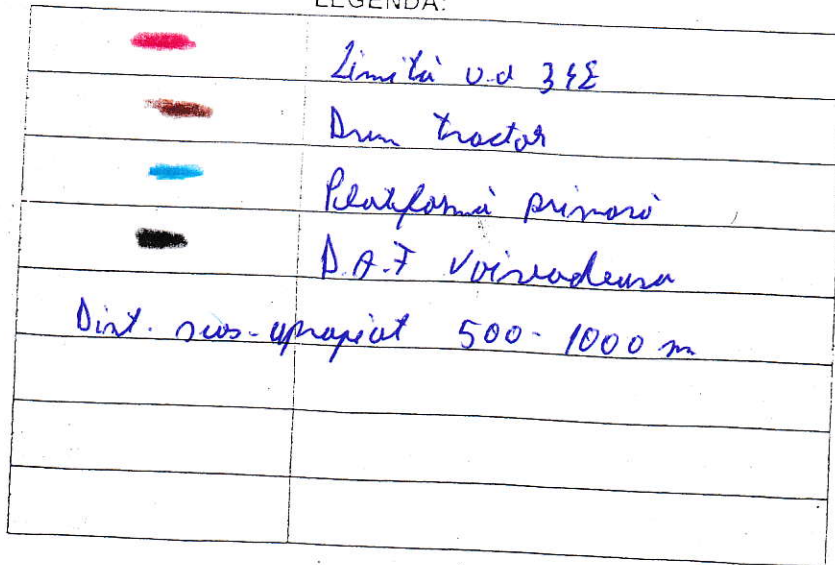 LEGENDA:
Limită u.a 34E
Drum tractor
Platformă primară
D.A.F Voivodeasa
Dist. scos-apropiat 500-1000 m